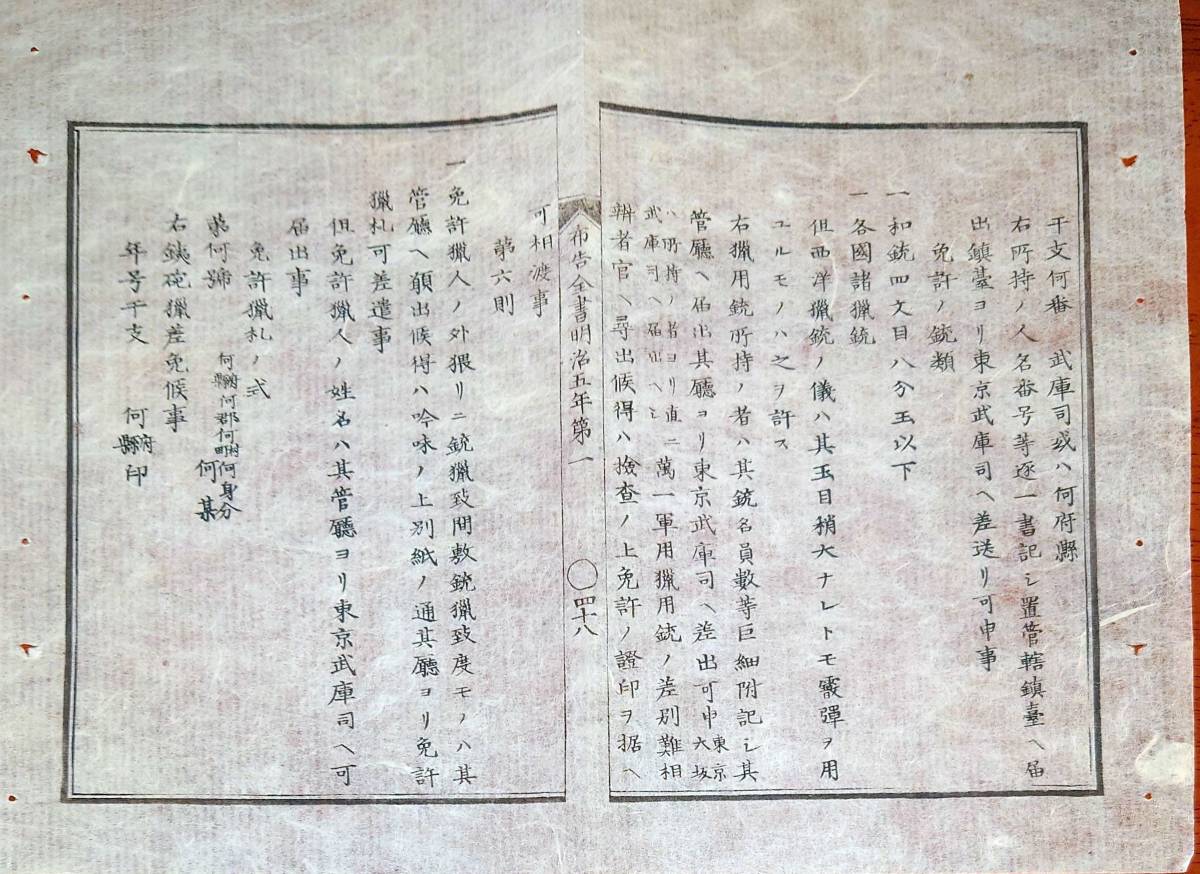 干支何番　武庫司或ハ何府縣
右所持ノ人名番号等逐一書記シ置管轄鎮臺ヘ届
出鎮臺ヨリ東京武庫司ヘ差送リ可申事
免許ノ銃類
一和銃四文目八分玉以下
一各國諸獵銃
但西洋獵銃ノ儀ハ其玉目稍大ナレトモ霰彈ヲ用
ユルモノハ之ヲ許ス
右獵用銃所持ノ者ハ其銃名員數等巨細附記シ其
管廳ヘ届出其廳ヨリ東京武庫司ヘ差出可申東京大坂
ハ所持ノ者ヨリ直ニ武庫司ヘ届出ヘシ萬一軍用獵用銃ノ差別難相
辨者官ヘ尋出候得ハ撿査ノ上免許ノ證印ヲ据ヘ
布告全書明治五年第一
〇四十八
可相渡事
第六則
一免許獵人ノ外猥リニ銃獵致間敷銃獵致度モノハ其
管廳ヘ願出候得ハ吟味ノ上別紙ノ通其廳ヨリ免許
獵札可差遣事
但免許獵人ノ姓名ハ其管廳ヨリ東京武庫司ヘ可
届出事
免許獵札ノ式
第何號　何府縣何郡何町村何身分
何某
右銕砲獵差免候事
年号干支　何府縣印